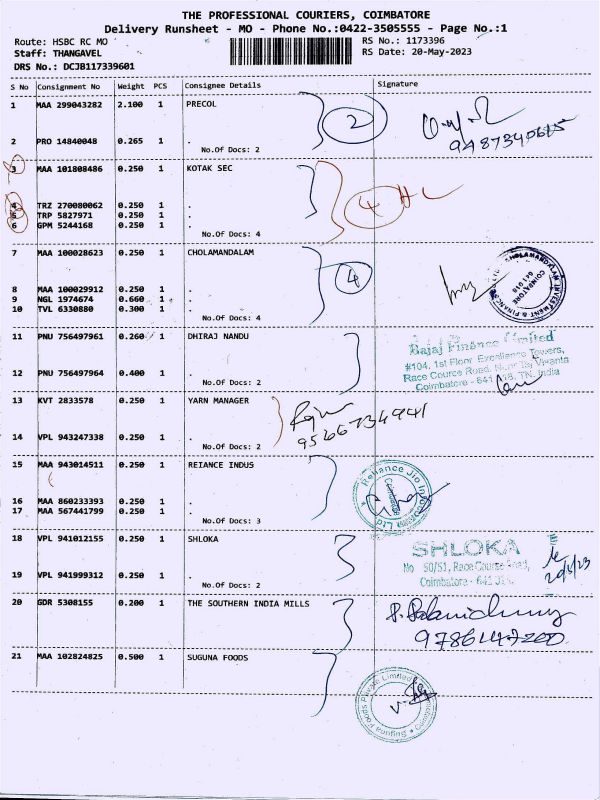 THE PROFESSIONAL COURIERS, COIMBATORE
Delivery Runsheet - MO - Phone No.:0422-3505555 - Page No.:1
Route: HSBC RC MO RS No.: 1173396
Staff: THANGAVEL RS Date: 20-May-2023
DRS No.: DCJB117339601
S No Consignment No Weight PCS Consignee Details Signature
1 MAA 299043282 2.100 1 PRECOL
2
2 PRO 14840048 0.265 1 .
No.Of Docs: 2
3 MAA 101808486 0.250 1 KOTAK SEC
4
4 TRZ 270080062 0.250 1 .
5 TRP 5827971 0.250 1 .
6 GPM 5244168 0.250 1 .
No.Of Docs: 4
7 MAA 100028623 0.250 1 CHOLAMANDALAM
4
8 MAA 100029912 0.250 1 .
9 NGL 1974674 0.660 1 .
10 TVL 6330880 0.300 1 .
No.Of Docs: 4
CHOLAMANDALAM INVESTMENT & FINANCE
COIMBATORE
641 018
11 PNU 756497961 0.260 1 DHIRAJ NANDU
Bajaj Finance Limited
#104, 1st Floor, Excellence Towers,
Race Course Road, Near Taj Vivanta
Coimbatore - 641 018, TN, India
12 PNU 756497964 0.400 1 .
No.Of Docs: 2
13 KVT 2833578 0.250 1 YARN MANAGER
14 VPL 943247338 0.250 1 .
No.Of Docs: 2
15 MAA 943014511 0.250 1 REIANCE INDUS
Reliance Jio
Coimbatore
Ltd
16 MAA 860233393 0.250 1 .
17 MAA 567441799 0.250 1 .
No.Of Docs: 3
18 VPL 941012155 0.250 1 SHLOKA
SHLOKA
No 50/51, Race Course Road,
Coimbatore - 641
20/5/23
19 VPL 941999312 0.250 1 .
No.Of Docs: 2
20 GDR 5308155 0.200 1 THE SOUTHERN INDIA MILLS
21 MAA 102824825 0.500 1 SUGUNA FOODS
Suguna Foods Private Limited